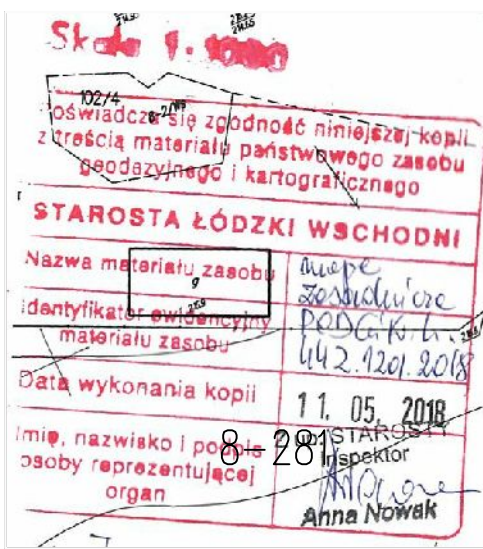 Skala 1:1000
102/4
Poświadcza się zgodność niniejszej kopii
z treścią materiału państwowego zasobu
geodezyjnego i kartograficznego
STAROSTA ŁÓDZKI WSCHODNI
Nazwa materiału zasobu
mapa
zasadnicza
Identyfikator ewidencyjny
materiału zasobu
PODGiK.Ł.
442.1201.2018
Data wykonania kopii
11. 05. 2018
Imię, nazwisko i podpis
osoby reprezentującej
organ
8-281
STAROSTY
Inspektor
Anna Nowak